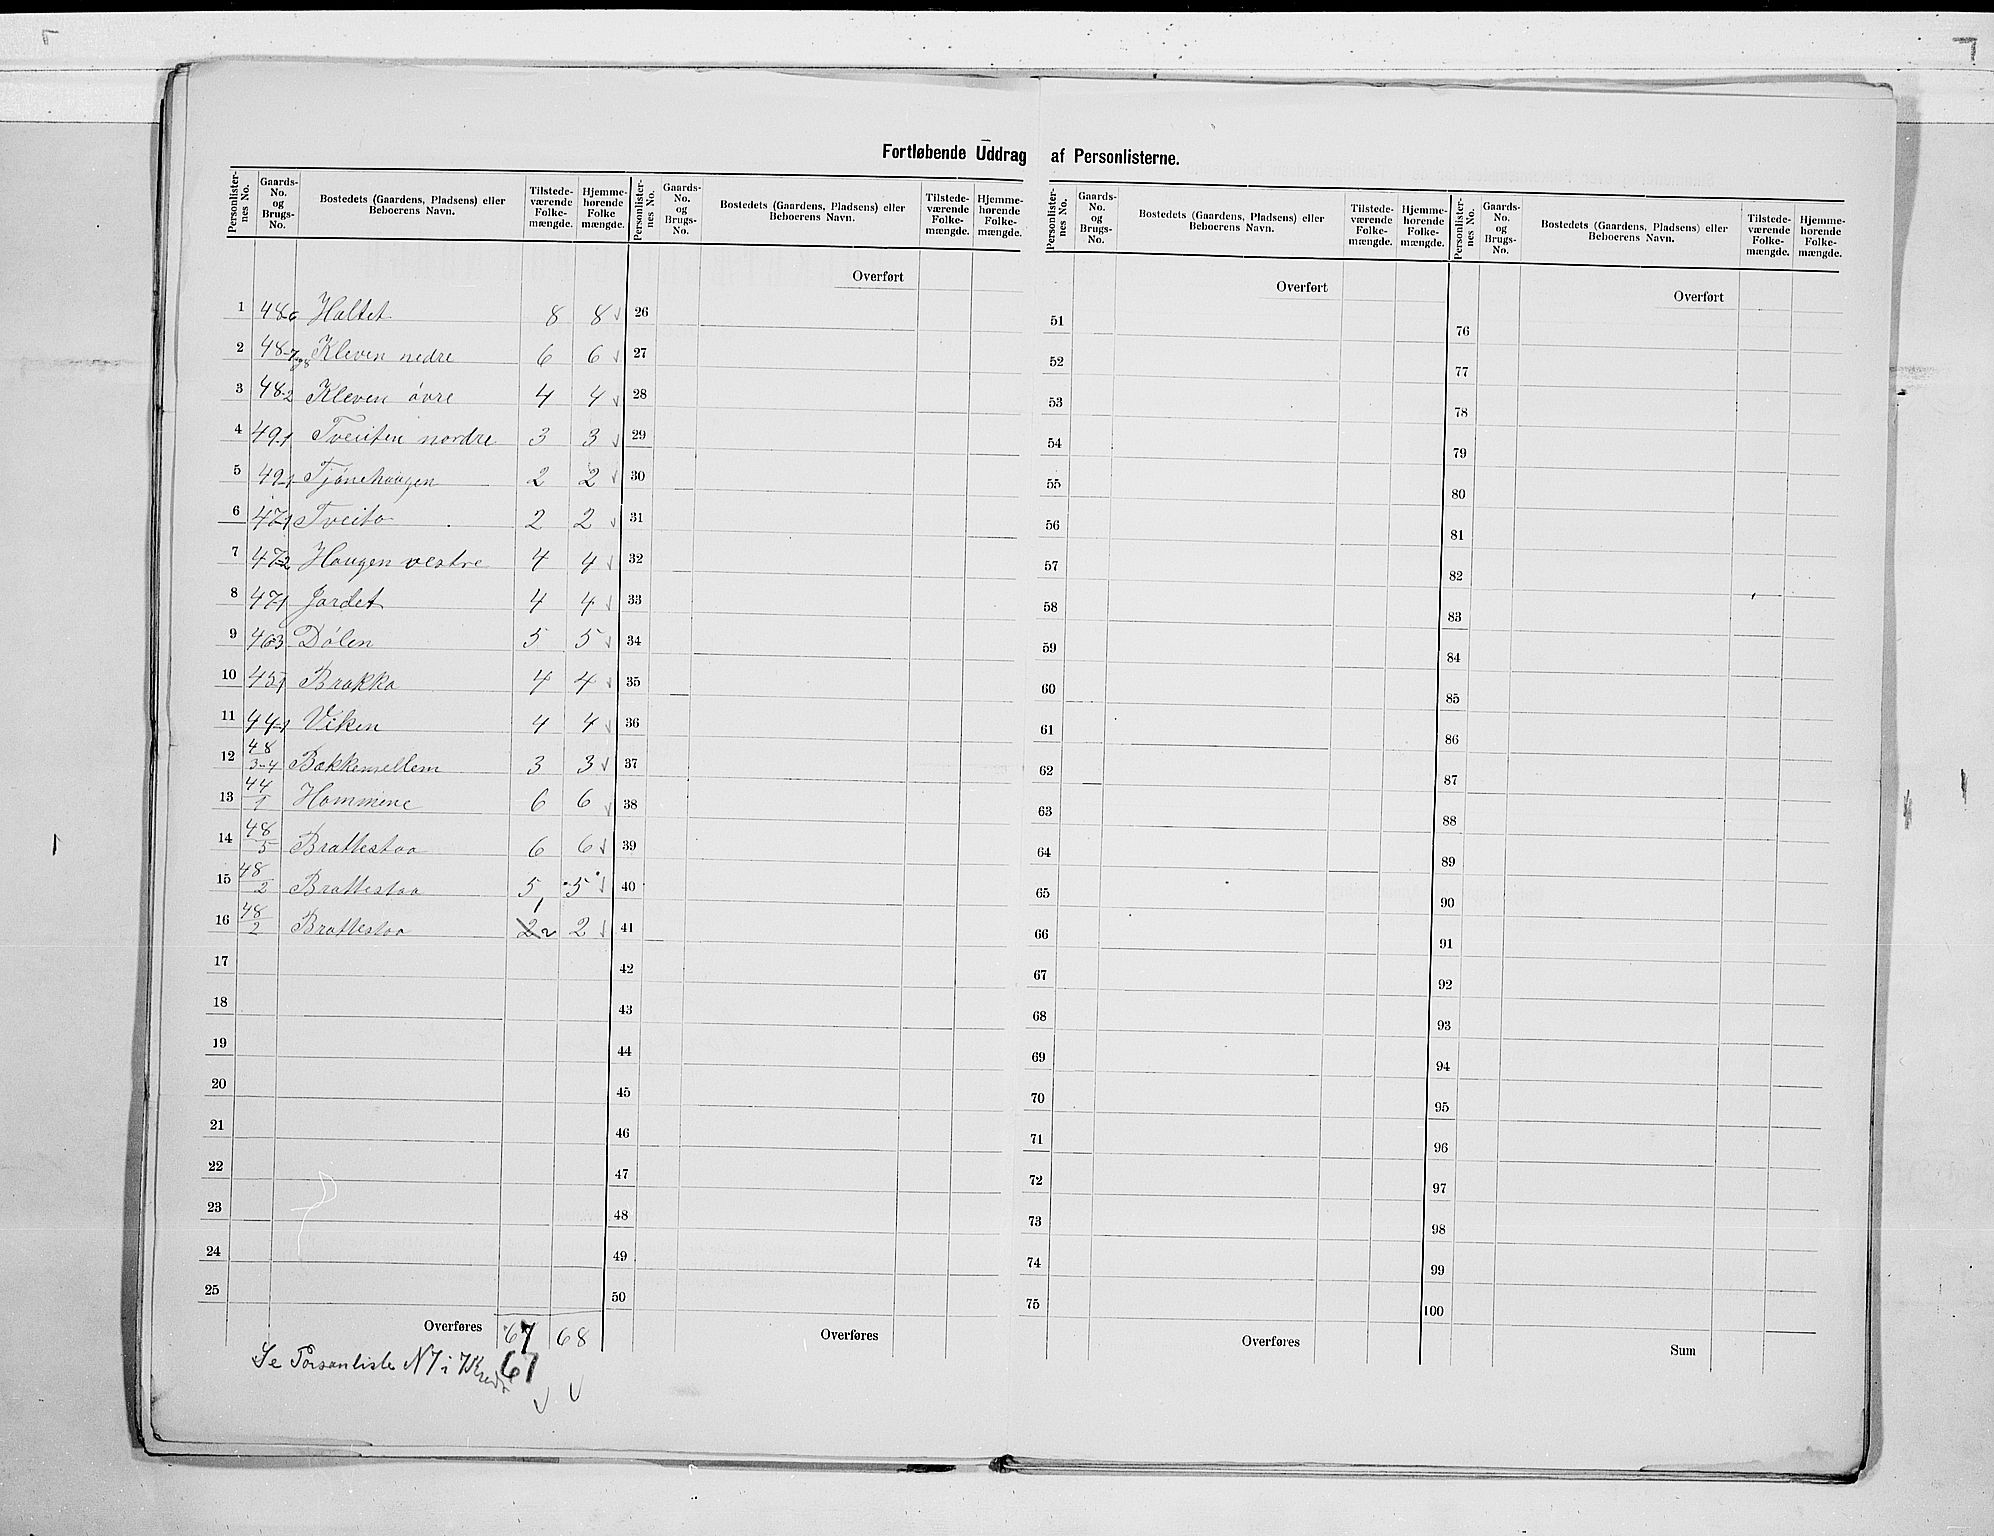 Fortløbende Uddrag af Personlisterne.
Personlister-nes No. | Gaards-No. og Brugs-No. | Bostedets (Gaardens, Pladsens) eller Beboerens Navn. | Tilstede-værende Folke-mængde. | Hjemme-hørende Folke mængde.
1 48-6 Haltet 8 8 √
2 48-7 Kleven nedre 6 6 √
3 48-2 Kleven øvre 4 4 √
4 49-1 Tveiten nordre 3 3 √
5 49-1 Tjønehaugen 2 2 √
6 47-1 Tveito 2 2 √
7 47-2 Haugen vestre 4 4 √
8 47-1 Jordet 4 4 √
9 46-3 Dølen 5 5 √
10 45-1 Brakka 4 4 √
11 44-1 Viken 4 4 √
12 48/3-4 Bakkemellem 3 3 √
13 44/1 Hammene 6 6 √
14 48/5 Brattestaa 6 6 √
15 48/2 Brattestaa 5 5 √
16 48/2 Brattestaa 2 1 2 √
17
18
19
20
21
22
23
24
25
Overføres 67 68
67
Se Personliste N 7 i 7 Kreds
√ √
Personlister-nes No. | Gaards-No. og Brugs-No. | Bostedets (Gaardens, Pladsens) eller Beboerens Navn. | Tilstede-værende Folke-mængde. | Hjemme-hørende Folke-mængde.
Overført
26
27
28
29
30
31
32
33
34
35
36
37
38
39
40
41
42
43
44
45
46
47
48
49
50
Overføres
Personlister-nes No. | Gaards-No. og Brugs-No. | Bostedets (Gaardens, Pladsens) eller Beboerens Navn. | Tilstede-værende Folke-mængde. | Hjemme-hørende Folke-mængde.
Overført
51
52
53
54
55
56
57
58
59
60
61
62
63
64
65
66
67
68
69
70
71
72
73
74
75
Overføres
Personlister-nes No. | Gaards-No. og Brugs-No. | Bostedets (Gaardens, Pladsens) eller Beboerens Navn. | Tilstede-værende Folke-mængde. | Hjemme-hørende Folke-mængde.
Overført
76
77
78
79
80
81
82
83
84
85
86
87
88
89
90
91
92
93
94
95
96
97
98
99
100
Sum